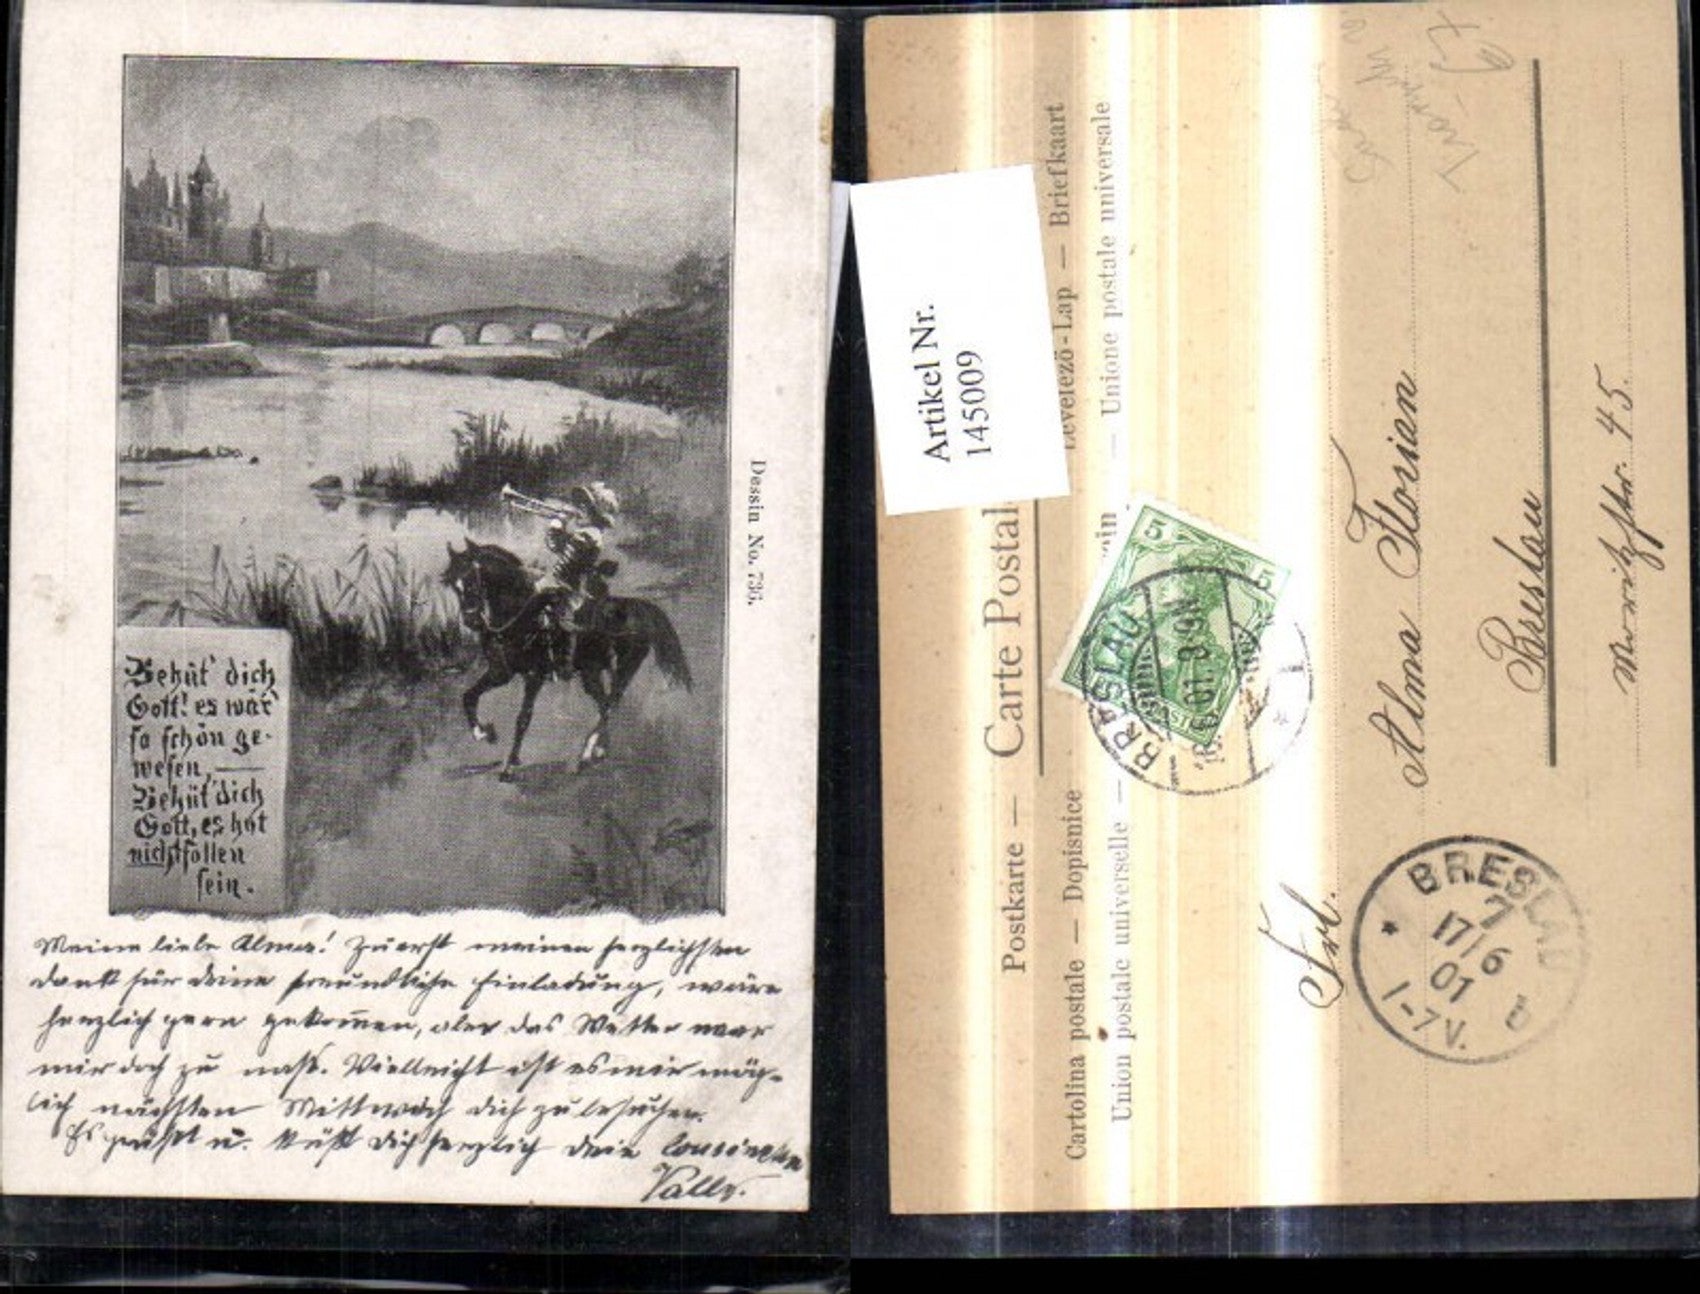 Behüt' dich
Gott! es wär'
so schön ge-
wesen,
Behüt' dich
Gott, es hat
nicht sollen
sein.
Dessin No. 736.
Meine liebe Alma! Zuerst meinen herzlichsten
Dank für deine freundliche Einladung, wäre
herzlich gern gekommen, aber das Wetter war
mir doch zu naß. Vielleicht ist es mir mög-
lich nächsten Mittwoch dich zu besuchen.
Es grüßt u. küßt Dich herzlich deine Cousine
Vally.
Artikel Nr.
145009
Postkarte — Carte Postal
Cartolina postale — Dopisnice
Levelező-Lap — Briefkaart
Union postale universelle —
— Unione postale universale
5
5
BRESLAU
BRESLAU
7
17/6
01
1-7 V.
Frl. Alma Florian
Breslau
Moritzstr. 45.